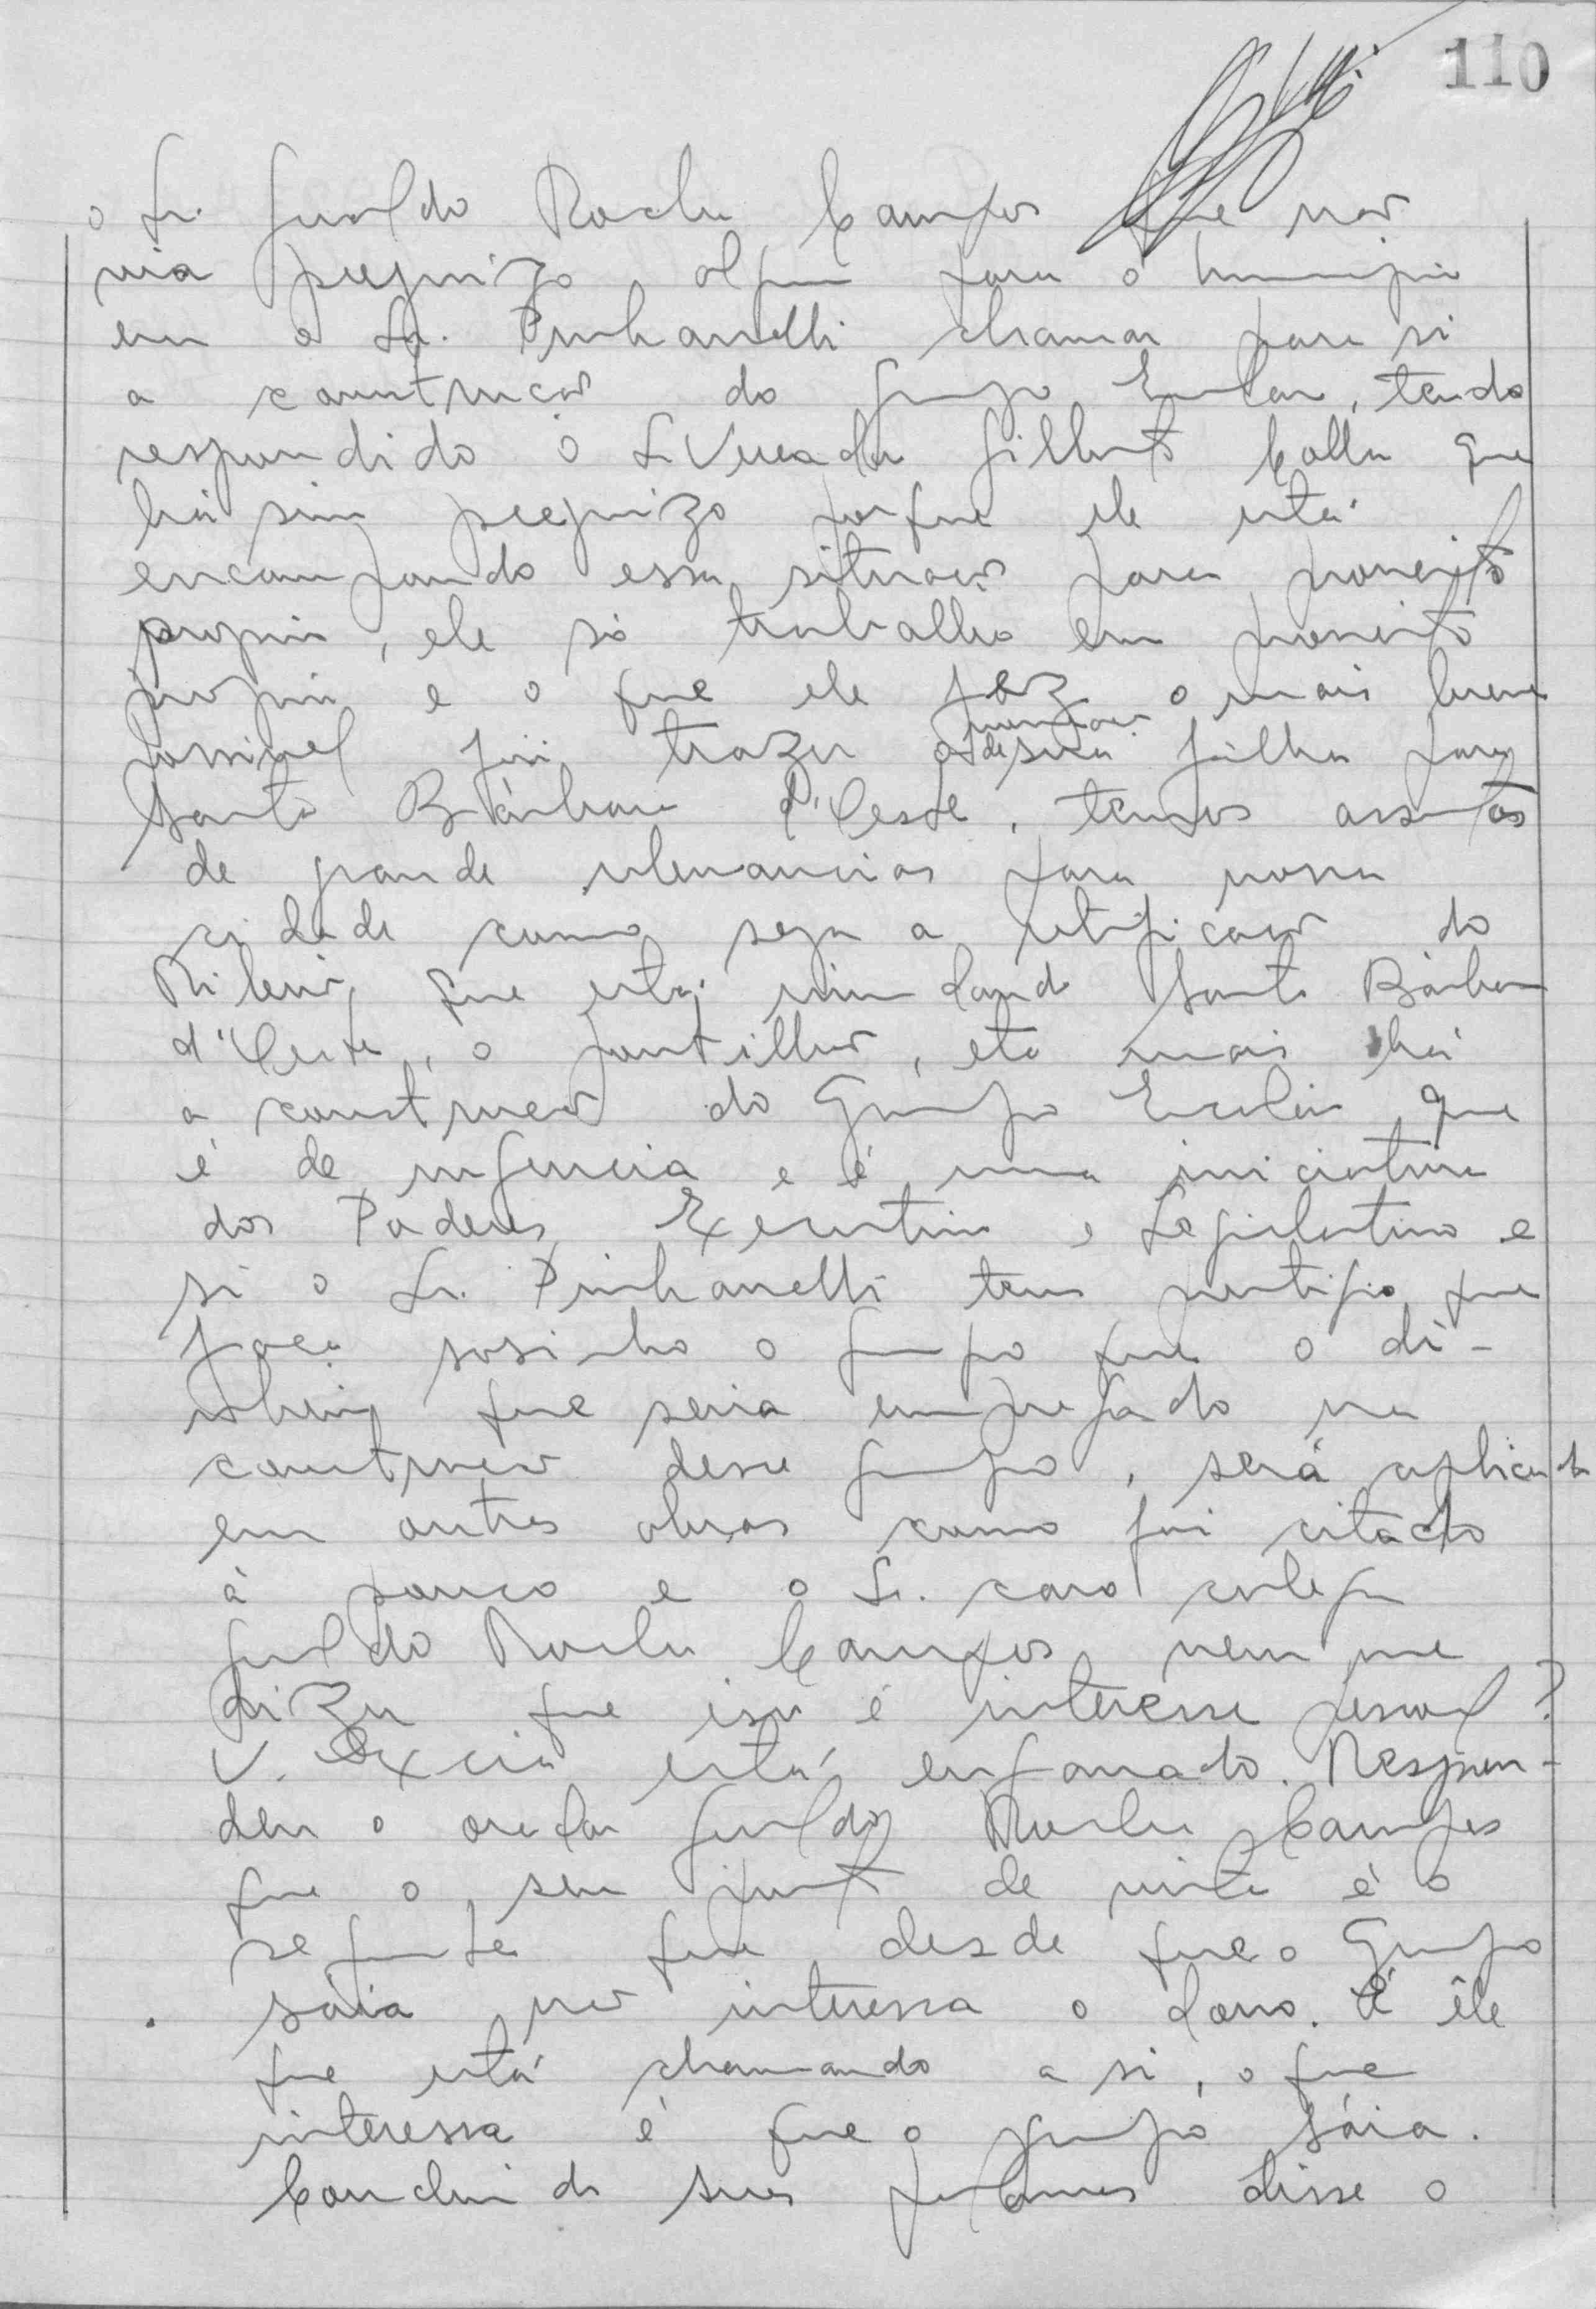 110
o Sr. Geraldo Rocha Campos que não
via prejuizo algum para o municipio
em o Sr. Pinhanelli chamar para si
a construção do Grupo Escolar, tendo
respondido o Sr Vereador Gilberto Colla que
há sim prejuizo porque ele está
encampando essa situação para proveito
proprio, ele só trabalha em proveito
proprio e o que ele fez o mais breve
possivel foi trazer a remoção de sua filha para
Santa Bárbara d'Oeste, temos assuntos
de grande relevancias para nossa
cidade como seja a retificação do
Ribeirão, que está inundando Santa Bárbara
d'Oeste, o pontilhão, etc mais há
a construção do Grupo Escolar que
é de urgencia e é uma iniciativa
dos Poderes Executivo e Legislativo e
si o Sr. Pinhanelli tem prestigio que
faça sosinho o grupo que o di-
nheiro que seria empregado na
construção desse grupo, será aplicado
em outras obras como foi citado
á pouco e o Sr. caro colega
Geraldo Rocha Campos vem me
dizer que isso é interesse pessoal?
V. Excia está enganado. Respon-
deu o orador Geraldo Rocha Campos
que o seu ponto de vista é o
seguinte que desde que o Grupo
sáia não interessa o dono. É êle
que está chamando a si, o que
interessa é que o grupo sáia.
Concluindo suas palavras disse o